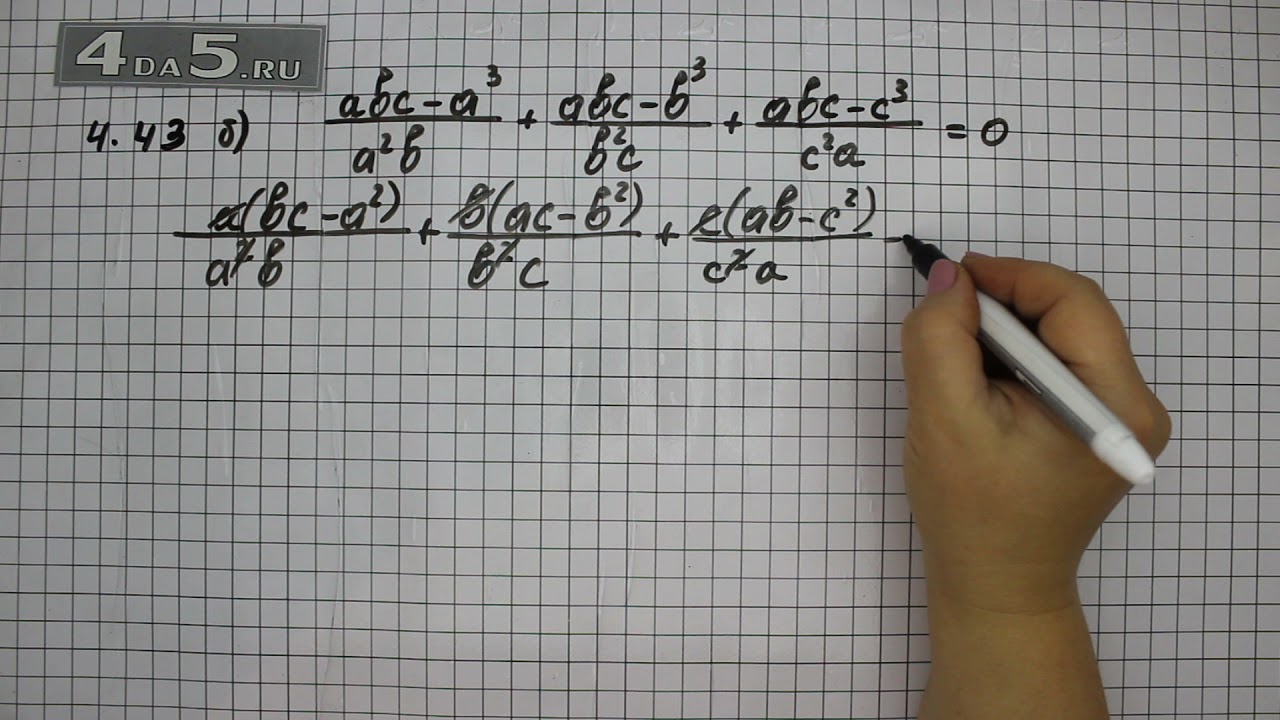 4DA5.RU
4.43 б) (abc - a³)/(a²b) + (abc - b³)/(b²c) + (abc - c³)/(c²a) = 0
a(bc - a²)/(a²b) + b(ac - b²)/(b²c) + c(ab - c²)/(c²a) -